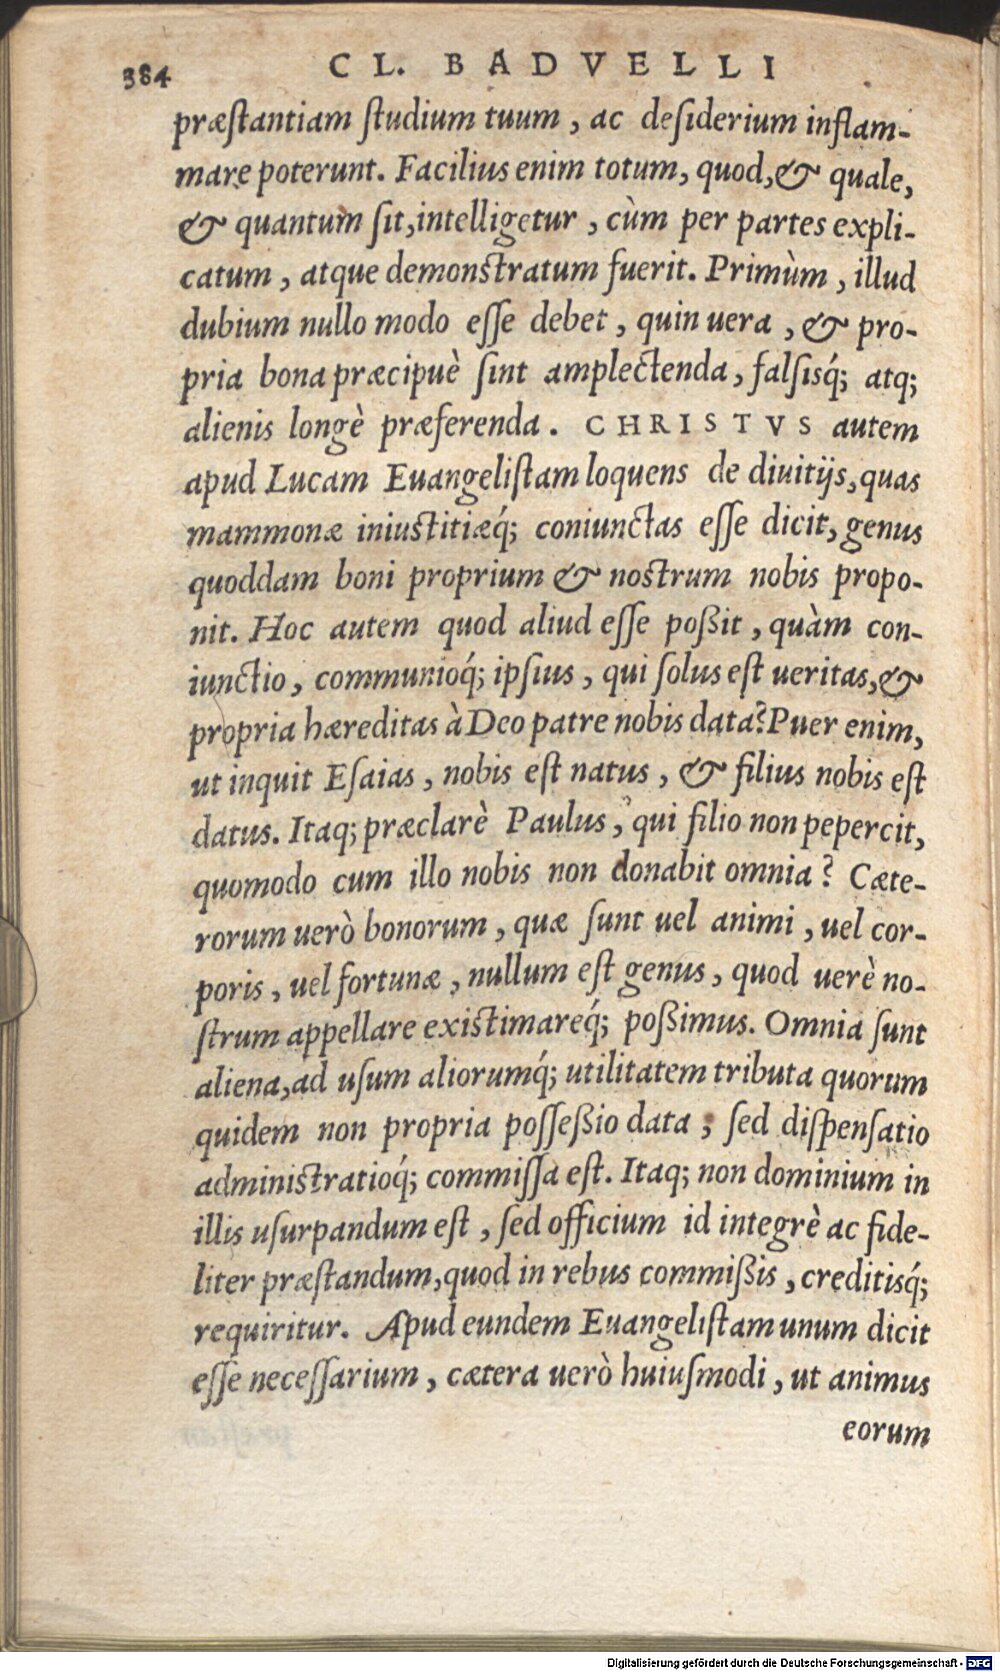 384 CL. BADVELLI
præſtantiam ſtudium tuum, ac deſiderium inflam-
mare poterunt. Facilius enim totum, quod, & quale,
& quantum ſit, intelligetur, cùm per partes expli-
catum, atque demonſtratum fuerit. Primùm, illud
dubium nullo modo eſſe debet, quin uera, & pro-
pria bona præcipuè ſint amplectenda, falſisq́; atq;
alienis longè præferenda. CHRISTVS autem
apud Lucam Euangeliſtam loquens de diuitijs, quas
mammonæ iniuſtitiæq́; coniunctas eſſe dicit, genus
quoddam boni proprium & noſtrum nobis propo-
nit. Hoc autem quod aliud eſſe poßit, quàm con-
iunctio, communioq́; ipſius, qui ſolus eſt ueritas, &
propria hæreditas à Deo patre nobis data? Puer enim,
ut inquit Eſaias, nobis eſt natus, & filius nobis eſt
datus. Itaq; præclarè Paulus, qui filio non pepercit,
quomodo cum illo nobis non donabit omnia? Cæte-
rorum uerò bonorum, quæ ſunt uel animi, uel cor-
poris, uel fortunæ, nullum eſt genus, quod uerè no-
ſtrum appellare exiſtimareq́; poßimus. Omnia ſunt
aliena, ad uſum aliorumq́; utilitatem tributa quorum
quidem non propria poſſeßio data, ſed diſpenſatio
adminiſtratioq́; commiſſa eſt. Itaq; non dominium in
illis uſurpandum eſt, ſed officium id integrè ac fide-
liter præſtandum, quod in rebus commißis, creditisq́;
requiritur. Apud eundem Euangeliſtam unum dicit
eſſe neceſſarium, cætera uerò huiuſmodi, ut animus
eorum
Digitalisierung gefördert durch die Deutsche Forschungsgemeinschaft - DFG